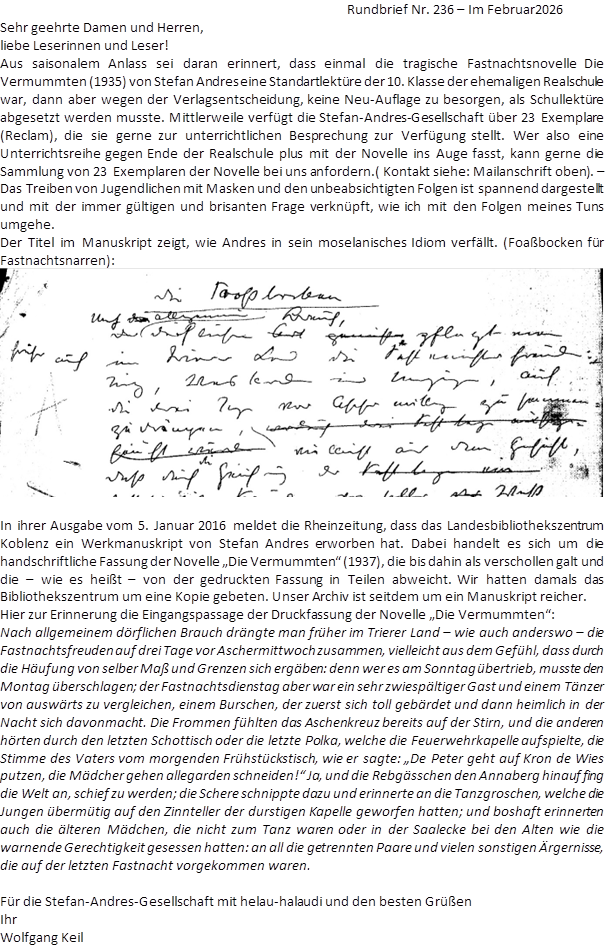 Rundbrief Nr. 236 – Im Februar2026
Sehr geehrte Damen und Herren,
liebe Leserinnen und Leser!
Aus saisonalem Anlass sei daran erinnert, dass einmal die tragische Fastnachtsnovelle Die
Vermummten (1935) von Stefan Andres eine Standartlektüre der 10. Klasse der ehemaligen Realschule
war, dann aber wegen der Verlagsentscheidung, keine Neu-Auflage zu besorgen, als Schullektüre
abgesetzt werden musste. Mittlerweile verfügt die Stefan-Andres-Gesellschaft über 23 Exemplare
(Reclam), die sie gerne zur unterrichtlichen Besprechung zur Verfügung stellt. Wer also eine
Unterrichtsreihe gegen Ende der Realschule plus mit der Novelle ins Auge fasst, kann gerne die
Sammlung von 23 Exemplaren der Novelle bei uns anfordern.( Kontakt siehe: Mailanschrift oben). –
Das Treiben von Jugendlichen mit Masken und den unbeabsichtigten Folgen ist spannend dargestellt
und mit der immer gültigen und brisanten Frage verknüpft, wie ich mit den Folgen meines Tuns
umgehe.
Der Titel im Manuskript zeigt, wie Andres in sein moselanisches Idiom verfällt. (Foaßbocken für
Fastnachtsnarren):
Die Foaßbocken
Nach allgemeinem Brauch,
pflegt man
früher auf im Trierer Land die
auf
die drei Tage vor Aschermittwoch zusammen
zu drängen, vielleicht aus dem Gefühl,
daß die Häufung
In ihrer Ausgabe vom 5. Januar 2016 meldet die Rheinzeitung, dass das Landesbibliothekszentrum
Koblenz ein Werkmanuskript von Stefan Andres erworben hat. Dabei handelt es sich um die
handschriftliche Fassung der Novelle „Die Vermummten“ (1937), die bis dahin als verschollen galt und
die – wie es heißt – von der gedruckten Fassung in Teilen abweicht. Wir hatten damals das
Bibliothekszentrum um eine Kopie gebeten. Unser Archiv ist seitdem um ein Manuskript reicher.
Hier zur Erinnerung die Eingangspassage der Druckfassung der Novelle „Die Vermummten“:
Nach allgemeinem dörflichen Brauch drängte man früher im Trierer Land – wie auch anderswo – die
Fastnachtsfreuden auf drei Tage vor Aschermittwoch zusammen, vielleicht aus dem Gefühl, dass durch
die Häufung von selber Maß und Grenzen sich ergäben: denn wer es am Sonntag übertrieb, musste den
Montag überschlagen; der Fastnachtsdienstag aber war ein sehr zwiespältiger Gast und einem Tänzer
von auswärts zu vergleichen, einem Burschen, der zuerst sich toll gebärdet und dann heimlich in der
Nacht sich davonmacht. Die Frommen fühlten das Aschenkreuz bereits auf der Stirn, und die anderen
hörten durch den letzten Schottisch oder die letzte Polka, welche die Feuerwehrkapelle aufspielte, die
Stimme des Vaters vom morgenden Frühstückstisch, wie er sagte: „De Peter geht auf Kron de Wies
putzen, die Mädcher gehen allegarden schneiden!“ Ja, und die Rebgässchen den Annaberg hinauf fing
die Welt an, schief zu werden; die Schere schnippte dazu und erinnerte an die Tanzgroschen, welche die
Jungen übermütig auf den Zinnteller der durstigen Kapelle geworfen hatten; und boshaft erinnerten
auch die älteren Mädchen, die nicht zum Tanz waren oder in der Saalecke bei den Alten wie die
warnende Gerechtigkeit gesessen hatten: an all die getrennten Paare und vielen sonstigen Ärgernisse,
die auf der letzten Fastnacht vorgekommen waren.
Für die Stefan-Andres-Gesellschaft mit helau-halaudi und den besten Grüßen
Ihr
Wolfgang Keil